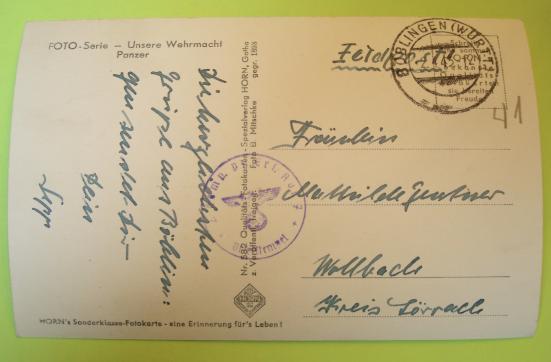 FOTO-Serie – Unsere Wehrmacht
Panzer
Die herzlichsten
Grüße aus Böblin:
gen sendet Dir
Dein
Sepp
Nr. 582 Qualitäts-Fotokarten-Spezialverlag HORN, Gotha
gegr. 1893
z. Veröffentl. freigeg. Foto G. Mitschke
HORN
HORN's Sonderklasse-Fotokarte - eine Erinnerung für's Leben!
Feldpost
BÖBLINGEN (WÜRTT)
sie bereiten
Freude
41
Fräulein
Mathilde Zentner
Wollbach
Kreis Lörrach